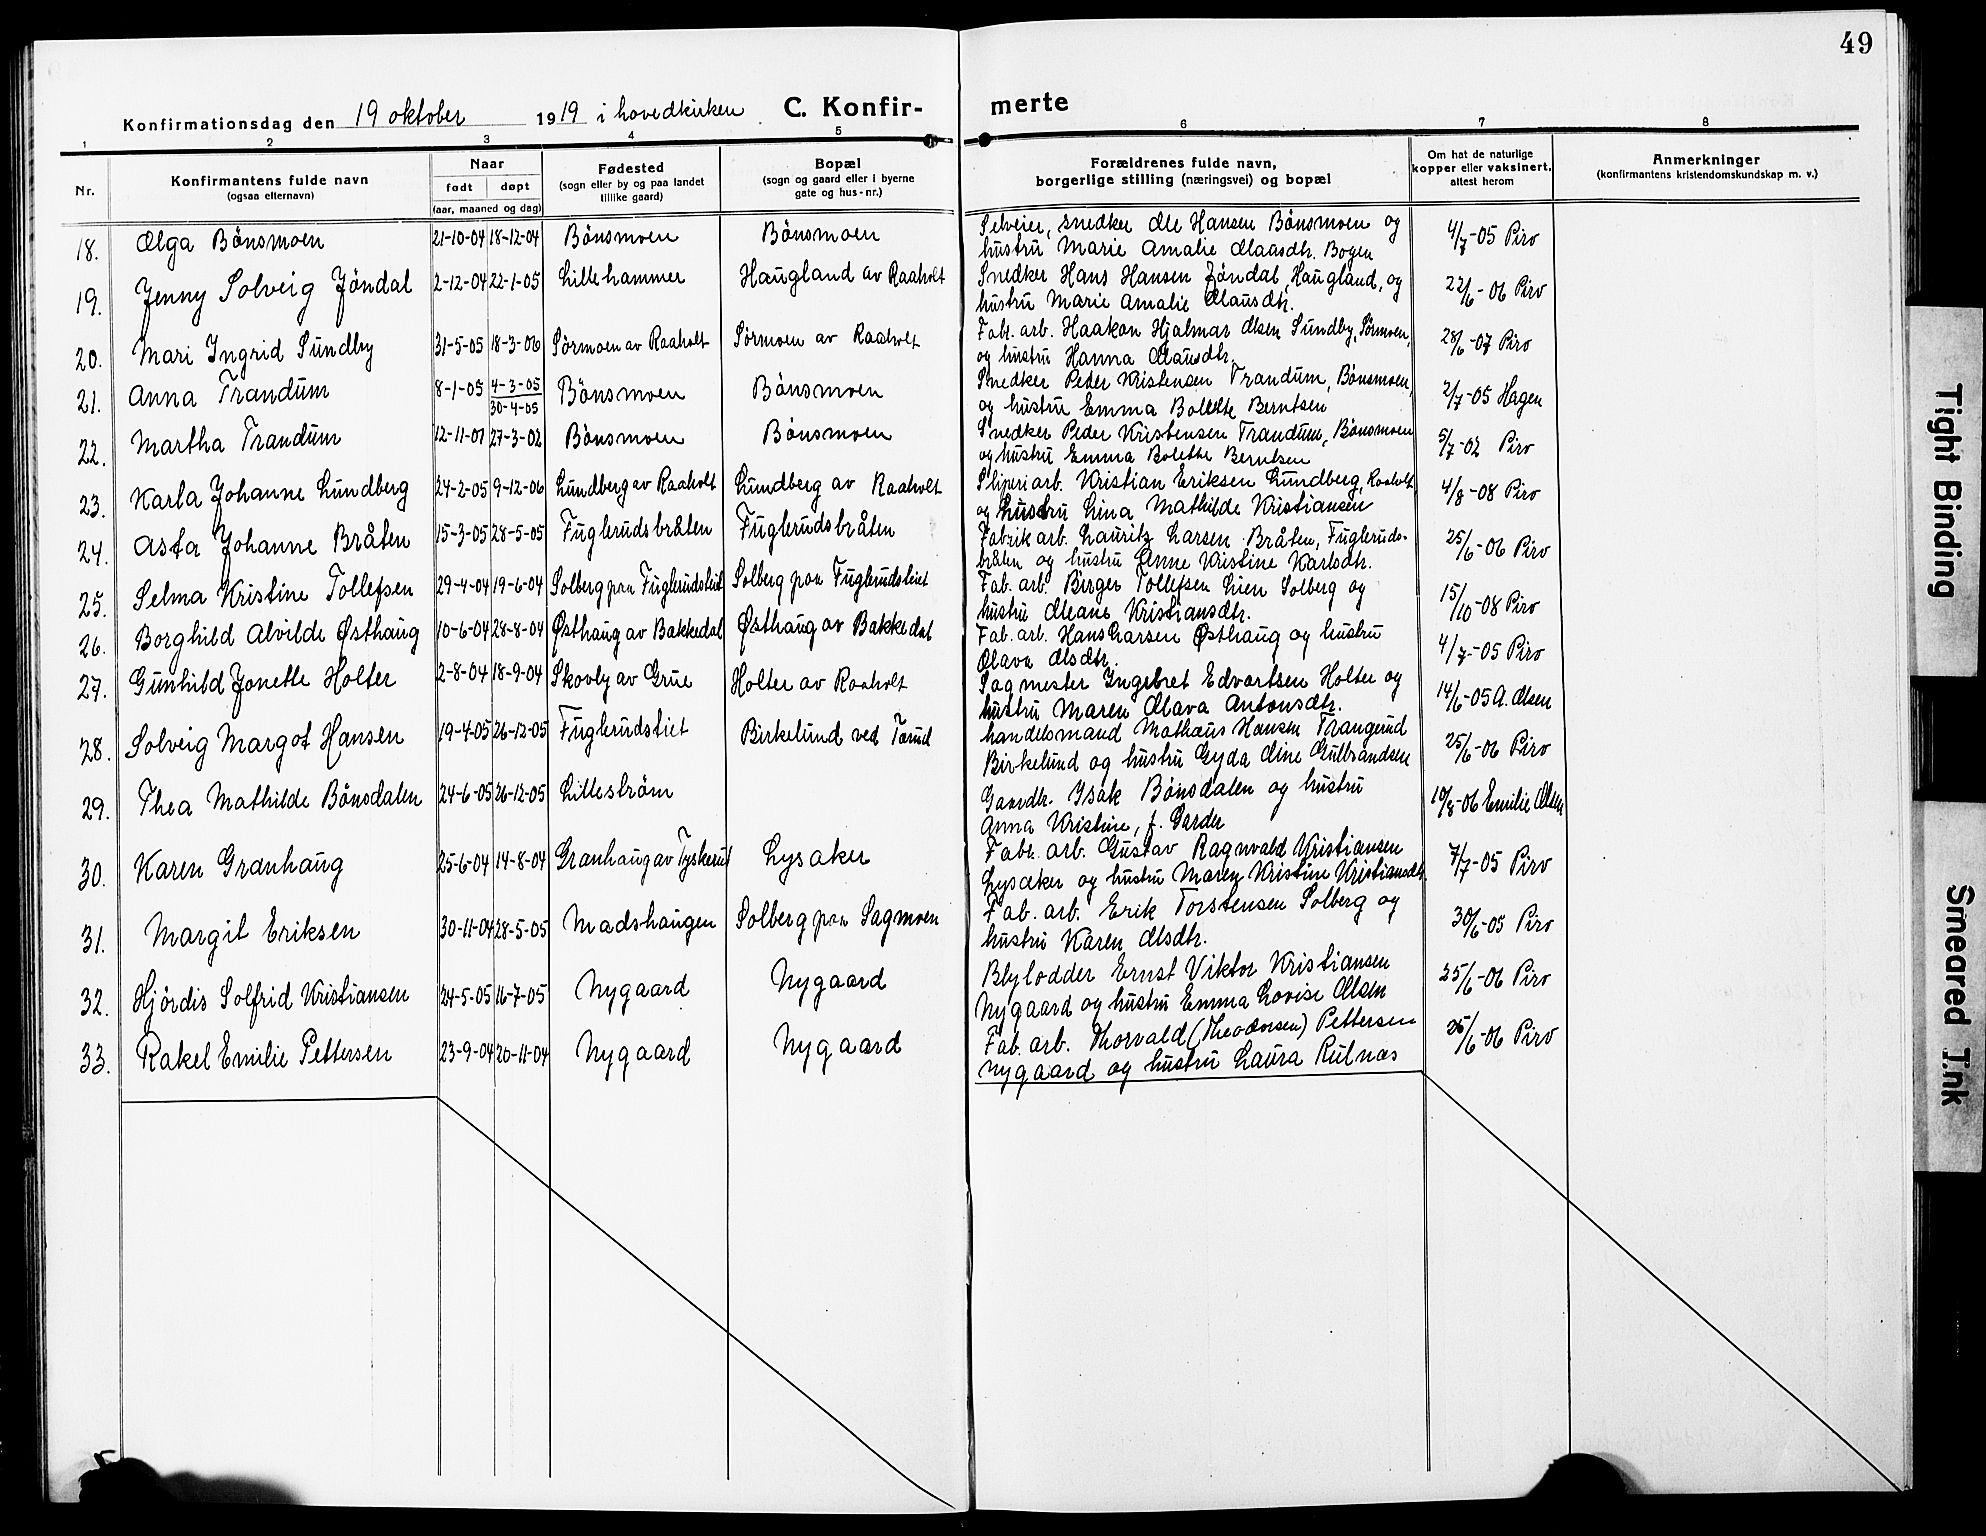 49
Konfirmationsdag den 19 oktober 1919 i hovedkirken C. Konfir- merte
1 2 3 4 5 6 7 8
Nr.
Konfirmantens fulde navn
(ogsaa efternavn)
Naar
født døpt
(aar, maaned og dag)
Fødested
(sogn eller by og paa landet
tillike gaard)
Bopæl
(sogn og gaard eller i byerne
gate og hus-nr.)
Forældrenes fulde navn,
borgerlige stilling (næringsvei) og bopæl
Om hat de naturlige
kopper eller vaksinert,
attest herom
Anmerkninger
(konfirmantens kristendomskundskap m. v.)
18. Olga Bönsmoen 21-10-04 18-12-04 Bönsmoen Bönsmoen Selveier, snedker Ole Hansen Bönsmoen og 4/7-05 Piro
hustru Marie Amalie Olaasdtr. Bogen
19. Jenny Solveig Jöndal 2-12-04 22-1-05 Lillehammer Haugland av Raaholt Snedker Hans Hansen Jöndal, Haugland, og 22/6-06 Piro
hustru Marie Amalie Olausdtr.
20. Mari Ingrid Sundby 31-5-05 18-3-06 Sörmoen av Raaholt Sörmoen av Raaholt Fabr. arb. Haakon Hjalmar Olsen Sundby, Sörmoen, 28/6-07 Piro
og hustru Hanna Olausdtr.
21. Anna Trandum 8-1-05 4-3-05 Bönsmoen Bönsmoen Snedker Peder Kristensen Trandum, Bönsmoen, 2/7-05 Hagen
30-4-05 og hustru Emma Bolette Berntsen
22. Martha Trandum 12-11-01 27-3-02 Bönsmoen Bönsmoen Snedker Peder Kristensen Trandum, Bönsmoen 5/7-02 Piro
og hustru Emma Bolette Berntsen
23. Karla Johanne Lundberg 24-2-05 9-12-06 Lundberg av Raaholt Lundberg av Raaholt Sliperiarb. Kristian Eriksen Lundberg, Raaholt 4/8-08 Piro
og hustru Lina Mathilde Kristiansen
24. Asta Johanne Bråten 15-3-05 28-5-05 Fuglerudsbråten Fuglerudsbråten Fabrikarb. Lauritz Larsen Bråten, Fugleruds- 25/6-06 Piro
bråten og hustru Anne Kristine Karlsdtr.
25. Selma Kristine Tollefsen 29-4-04 19-6-04 Solberg paa Fuglerudsleiet Solberg paa Fuglerudsleiet Fab. arb. Birger Tollefsen Lien Solberg og 15/10-08 Piro
hustru Oleane Kristiansdtr.
26. Borghild Alvilde Østhaug 10-6-04 28-8-04 Østhaug av Bakkedal Østhaug av Bakkedal Fab. arb. Hans Larsen Østhaug og hustru 4/7-05 Piro
Olava Olsdtr.
27. Gunhild Jonette Holter 2-8-04 18-9-04 Skovby av Grue Holter av Raaholt Sagmester Ingebret Edvartsen Holter og 14/6-05 A. Olsen
hustru Maren Olava Antonsdtr.
28. Solveig Margot Hansen 19-4-05 26-12-05 Fuglerudstiet Birkelund ved Tarud handelsmand Mathaus Hansen Trangerud 25/6-06 Piro
Birkelund og hustru Gyda Oline Gulbrandsen
29. Thea Mathilde Bönsdalen 24-6-05 26-12-05 Lilleström Gaardbr. Isak Bönsdalen og hustru 10/8-06 Emilie Olsen
Anna Kristine, f. Garder
30. Karen Granhaug 25-6-04 14-8-04 Granhaug av Tyskerud Lysaker Fabr. arb. Gustav Ragnvald Kristiansen 7/7-05 Piro
Lysaker og hustru Maren Kristine Kristiansdtr.
31. Margit Eriksen 30-11-04 28-5-05 Madshaugen Solberg paa Sagmoen Fab. arb. Erik Torstensen Solberg og 30/6-05 Piro
hustru Karen Olsdtr.
32. Hjördis Solfrid Kristiansen 24-5-05 16-7-05 Nygaard Nygaard Blylodder Ernst Viktor Kristiansen 25/6-06 Piro
Nygaard og hustru Emma Lovise Olsen
33. Rakel Emilie Pettersen 23-9-04 20-11-04 Nygaard Nygaard Fab. arb. Thorvald (Theodorsen) Pettersen 25/6-06 Piro
Nygaard og hustru Laura Rulnas
Tight Binding
Smeared I.nk